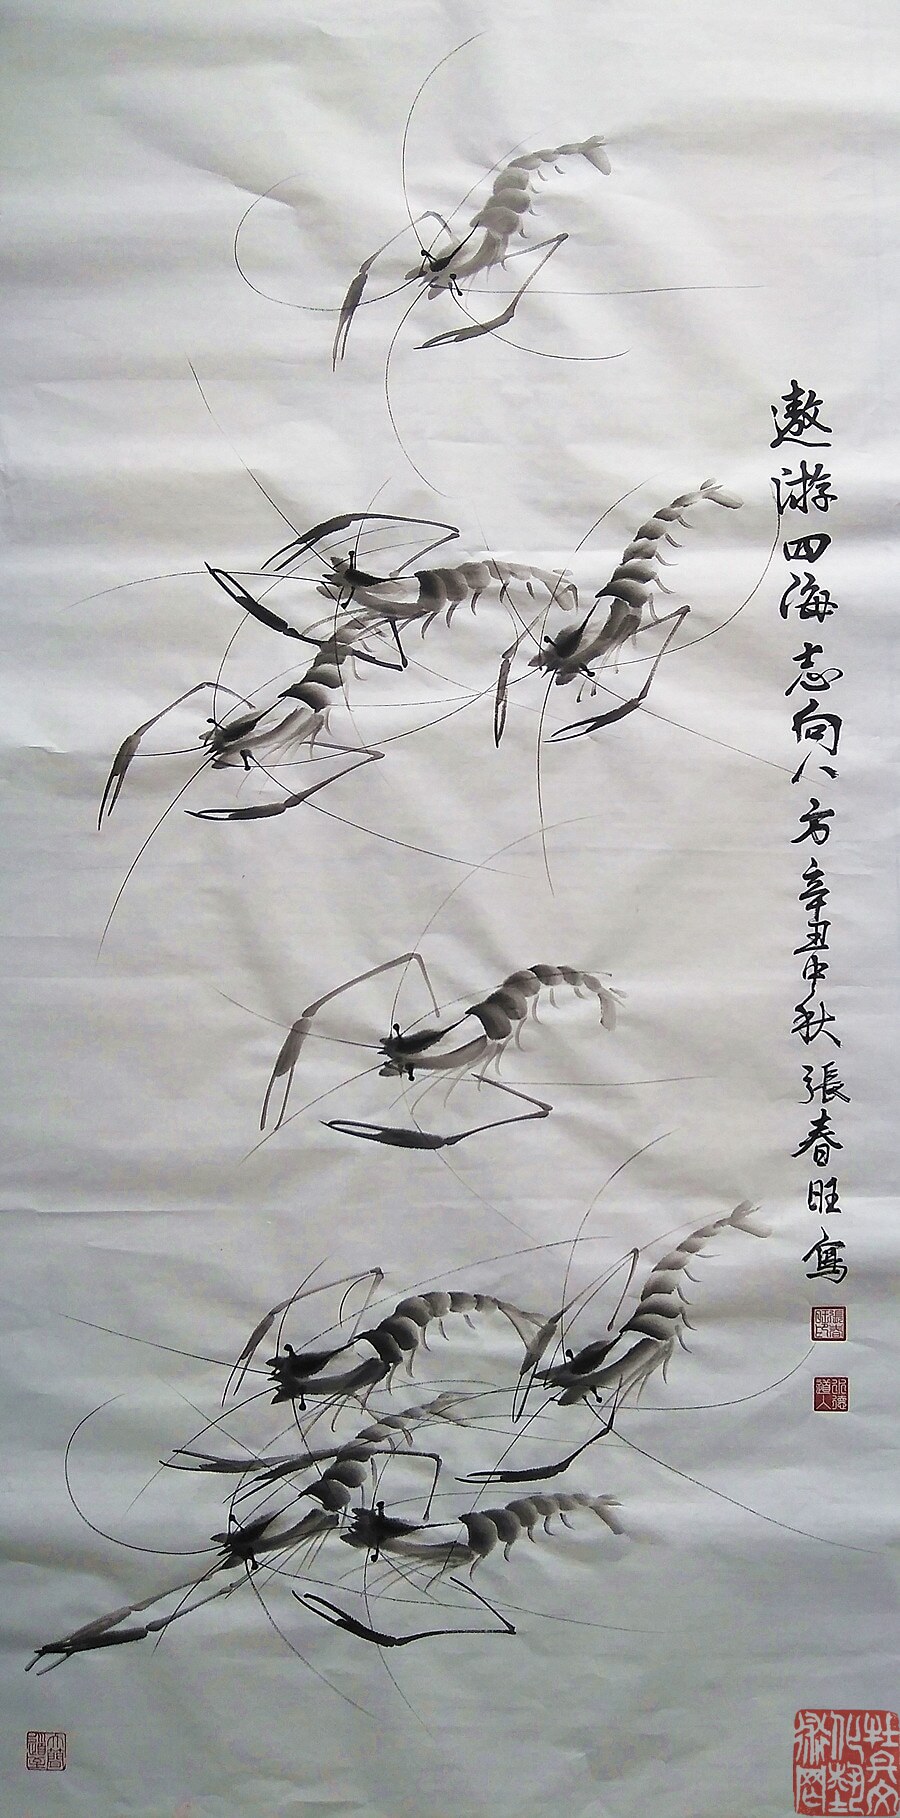 遨游四海志向八方辛丑中秋張春旺寫